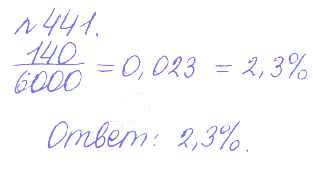 №441.
140/6000 = 0,023 = 2,3%
Ответ: 2,3%.